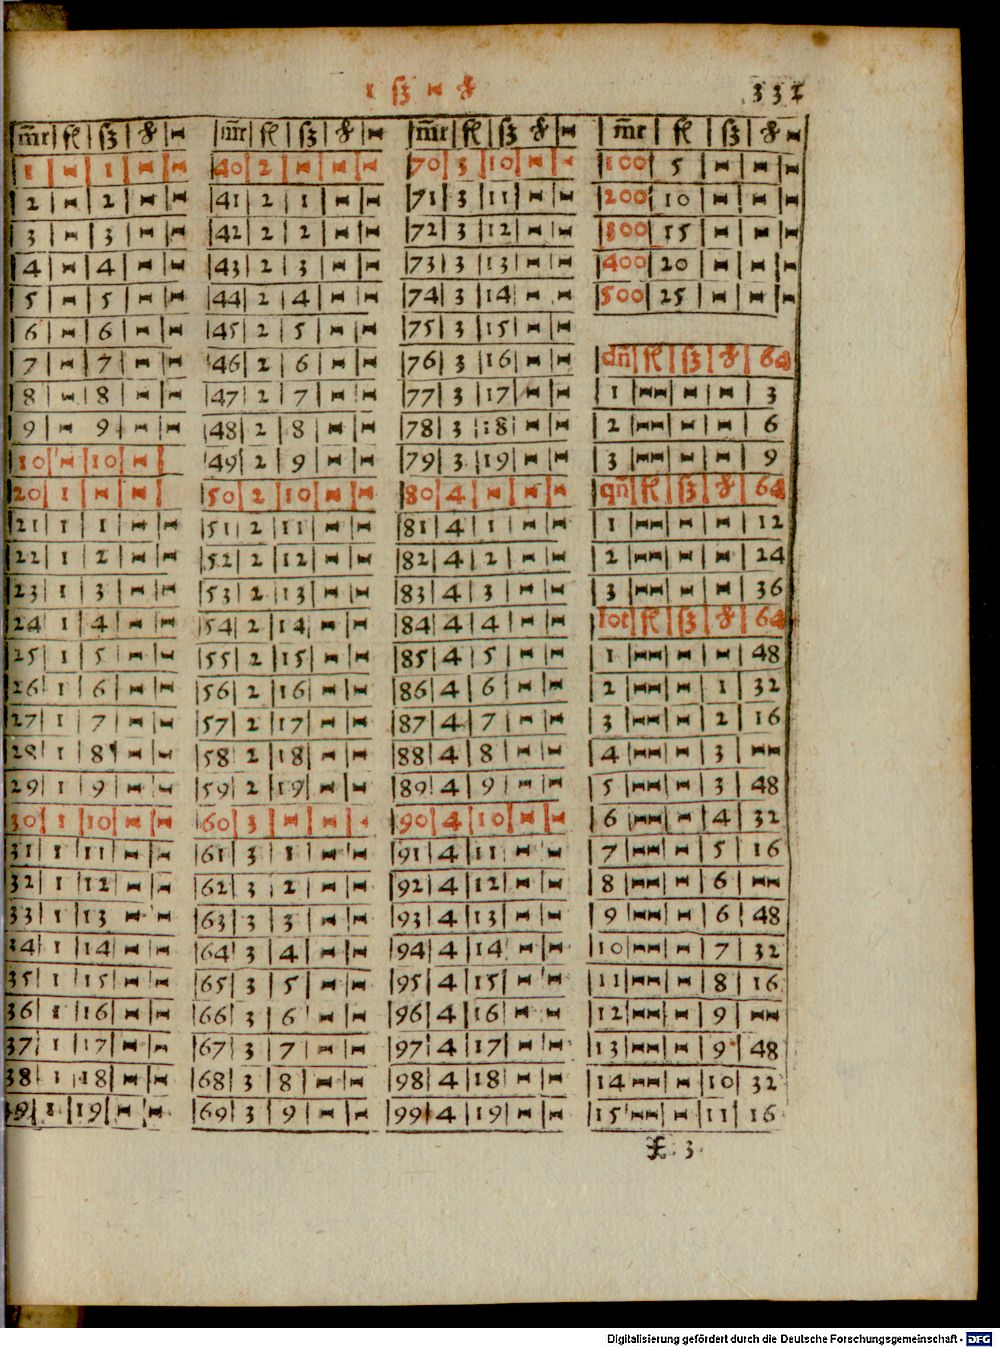 1 ſʒ - ₰
331
m̄r fl ſʒ ₰ -
1 - 1 - -
2 - 2 - -
3 - 3 - -
4 - 4 - -
5 - 5 - -
6 - 6 - -
7 - 7 - -
8 - 8 - -
9 - 9 - -
10 - 10 -
20 1 - -
21 1 1 - -
22 1 2 - -
23 1 3 - -
24 1 4 - -
25 1 5 - -
26 1 6 - -
27 1 7 - -
28 1 8 - -
29 1 9 - -
30 1 10 - -
31 1 11 - -
32 1 12 - -
33 1 13 - -
34 1 14 - -
35 1 15 - -
36 1 16 - -
37 1 17 - -
38 1 18 - -
39 1 19 - -
m̄r fl ſʒ ₰ -
40 2 - - -
41 2 1 - -
42 2 2 - -
43 2 3 - -
44 2 4 - -
45 2 5 - -
46 2 6 - -
47 2 7 - -
48 2 8 - -
49 2 9 - -
50 2 10 - -
51 2 11 - -
52 2 12 - -
53 2 13 - -
54 2 14 - -
55 2 15 - -
56 2 16 - -
57 2 17 - -
58 2 18 - -
59 2 19 - -
60 3 - - -
61 3 1 - -
62 3 2 - -
63 3 3 - -
64 3 4 - -
65 3 5 - -
66 3 6 - -
67 3 7 - -
68 3 8 - -
69 3 9 - -
m̄r fl ſʒ ₰ -
70 3 10 - -
71 3 11 - -
72 3 12 - -
73 3 13 - -
74 3 14 - -
75 3 15 - -
76 3 16 - -
77 3 17 - -
78 3 18 - -
79 3 19 - -
80 4 - - -
81 4 1 - -
82 4 2 - -
83 4 3 - -
84 4 4 - -
85 4 5 - -
86 4 6 - -
87 4 7 - -
88 4 8 - -
89 4 9 - -
90 4 10 - -
91 4 11 - -
92 4 12 - -
93 4 13 - -
94 4 14 - -
95 4 15 - -
96 4 16 - -
97 4 17 - -
98 4 18 - -
99 4 19 - -
m̄r fl ſʒ ₰ -
100 5 - - -
200 10 - - -
300 15 - - -
400 20 - - -
500 25 - - -
dn̄ fl ſʒ ₰ 64
1 -- - - 3
2 -- - - 6
3 -- - - 9
qn̄ fl ſʒ ₰ 64
1 -- - - 12
2 -- - - 24
3 -- - - 36
lot fl ſʒ ₰ 64
1 -- - - 48
2 -- - 1 32
3 -- - 2 16
4 -- - 3 --
5 -- - 3 48
6 -- - 4 32
7 -- - 5 16
8 -- - 6 --
9 -- - 6 48
10 -- - 7 32
11 -- - 8 16
12 -- - 9 --
13 -- - 9 48
14 -- - 10 32
15 -- - 11 16
f 3
Digitalisierung gefördert durch die Deutsche Forschungsgemeinschaft - DFG